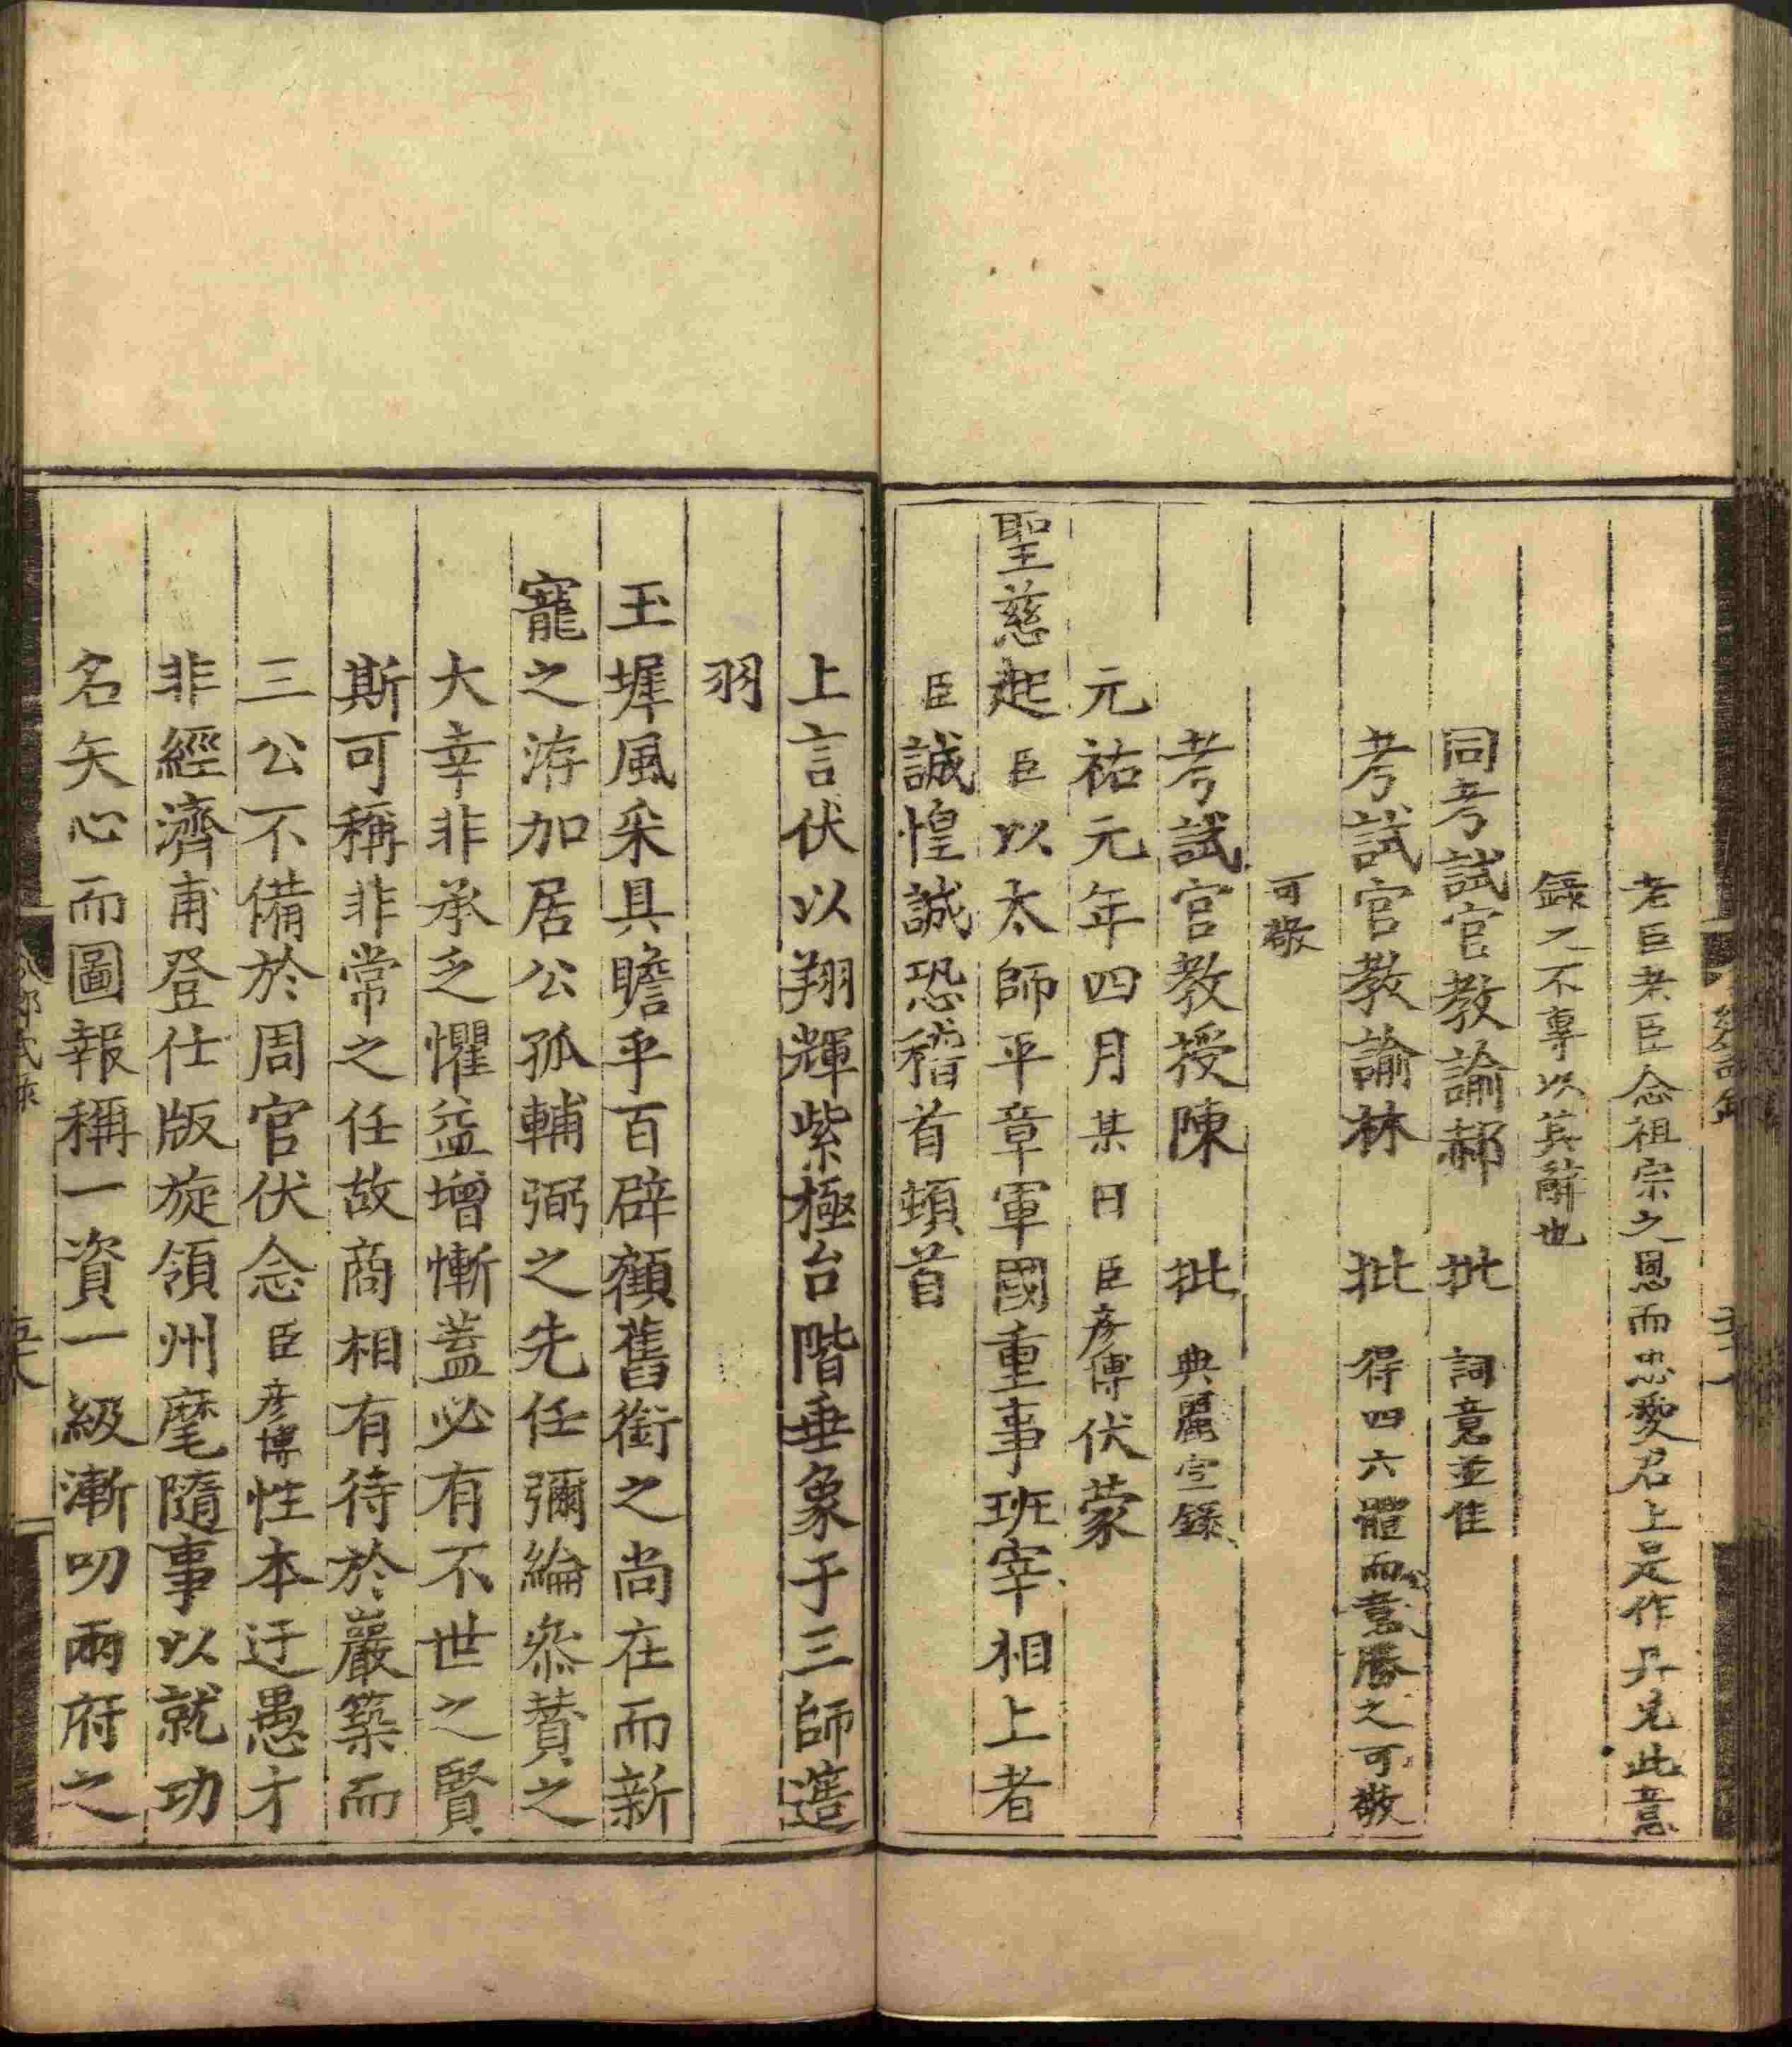 老臣老臣念祖宗之恩而忠愛君上是作具見此意
錄之不專以其辭也
同考試官教諭郝 批 詞意並佳
考試官教諭林 批 得四六體而意勝之可敬
可敬
考試官教授陳 批 典麗宜錄
元祐元年四月某日臣彦博伏蒙
聖慈起臣以太師平章軍國重事班宰相上者
臣誠惶誠恐稽首頓首
上言伏以翔輝紫極台階垂象于三師簉
羽
玉墀風采具瞻乎百辟顧舊銜之尚在而新
寵之洊加居公孤輔弼之先任彌綸叅賛之
大幸非承乏懼益增慚蓋必有不世之賢
斯可稱非常之任故商相有待於巖築而
三公不備於周官伏念臣彦博性本迂愚才
非經濟甫登仕版旋領州麾隨事以就功
名矢心而圖報稱一資一級漸叨兩府之